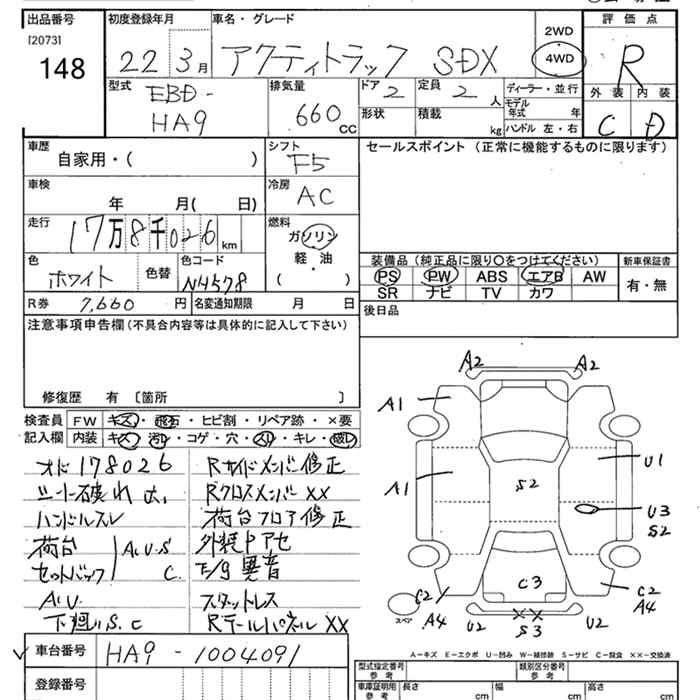 出品番号 初度登録年月 車名・グレード 評価点
[2073] 148
22 3月 アクティトラック SDX 2WD 4WD R
型式 EBD-HA9 排気量 660cc ドア 2 定員 2人 ディーラー・並行
形状 積載 kg モデル年式 年 ハンドル 左・右
外装 C 内装 D
車歴 自家用・( ) シフト F5 セールスポイント (正常に機能するものに限ります)
車検 年 月( 日) 冷房 AC
走行 17万8千026km 燃料 ガソリン 軽・油 ( )
色 ホワイト 色替 色コード NH578
装備品 (純正品に限り○をつけてください) 新車保証書
PS PW ABS エアB AW 有・無
SR ナビ TV カワ
R券 7,660円 名変通知期限 月 日 後日品
注意事項申告欄 (不具合内容等は具体的に記入して下さい)
修復歴 有 [箇所 ]
検査員記入欄
FW キズ・飛石・ヒビ割・リペア跡・×要
内装 キズ・汚レ・コゲ・穴・スリ・キレ・破レ
オド178026
シート破れ大
ハンドルスレ
荷台
セットバック
A.U.S
C.
A.U.
下廻りS.C
Rサイドメンバ修正
RクロスメンバXX
荷台フロア修正
外装中アセ
E/g異音
スタットレス
RテールパネルXX
A2 A2
A1
U1
A1
S2
U3
S2
C3
C2
A4
C2
A4
U2
XX
S3
U2
スペア
A-キズ E-エクボ U-凹み W-補修跡 S-サビ C-腐食 XX-交換済
車台番号 HA9-1004091
登録番号
型式指定番号 参考 類別区分番号 参考
車庫証明用 参考 長さ cm 幅 cm 高さ cm